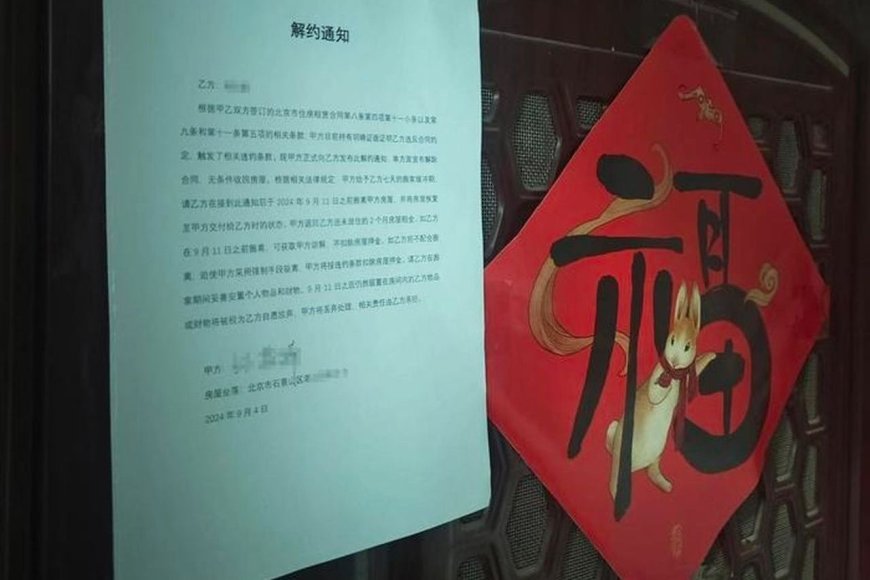 解约通知
乙方：
根据甲乙双方签订的北京市住房租赁合同第八条第四项第十一小条以及第
九条和第十一条第五项的相关条款，甲方目前持有明确证据证明乙方违反合同约
定，触发了相关违约条款，现甲方正式向乙方发布此解约通知，单方面宣布解除
合同，无条件收回房屋。根据相关法律规定，甲方给予乙方七天的搬家缓冲期，
请乙方在接到此通知后于 2024 年 9 月 11 日之前搬离甲方房屋，并将房屋恢复
至甲方交付给乙方时的状态，甲方退回乙方还未居住的 2 个月房屋租金，如乙方
在 9 月 11 日之前搬离，可获取甲方谅解，不扣除房屋押金。如乙方拒不配合搬
离，迫使甲方采用强制手段驱离，甲方将按违约条款扣除房屋押金。请乙方在搬
家期间妥善安置个人物品和财物，9 月 11 日之后仍然放置在房间内的乙方物品
或财物将被视为乙方自愿放弃，甲方将丢弃处理，相关责任由乙方承担。
甲方：
房屋坐落：北京市石景山区
2024 年 9 月 4 日
福